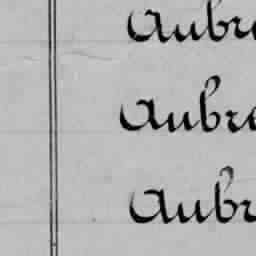 Aubre
Aubre
Aubr